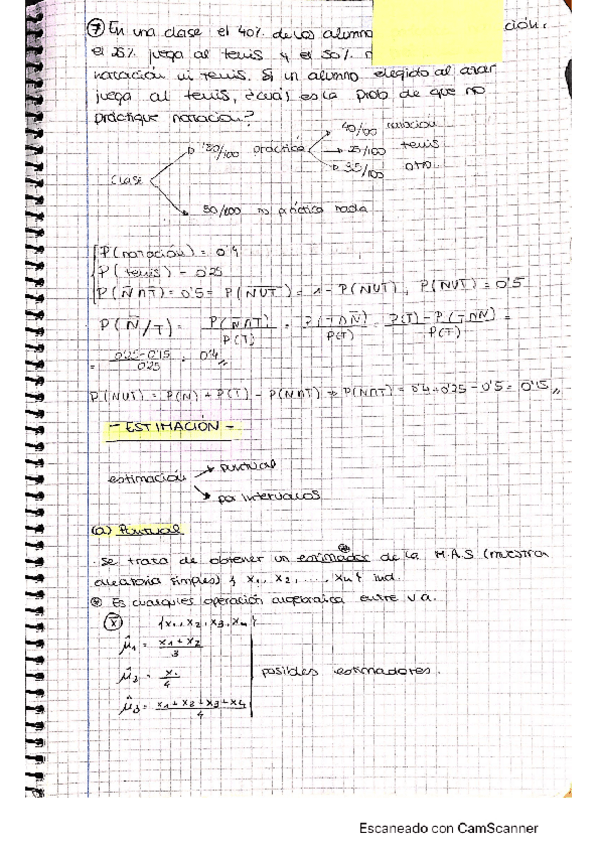 ⑦ En una clase el 40% de los alumno ción,
el 25% juega al tenis y el 50% n
natación ni tenis. Si un alumno elegido al azar
juega al tenis, ¿cuál es la prob de que no
practique natación?
40/100 natación
50/100 practica 25/100 tenis
35/100 otro
clase
50/100 no practica nada
P(natación) = 0'4
P(tenis) = 0'25
P(N̄∩T̄) = 0'5 = P(N̄UT̄) = 1 - P(NUT), P(NUT) = 0'5
P(N̄/T) = P(N̄∩T)/P(T) = P(T∩N̄)/P(T) = P(T) - P(T∩N)/P(T) =
= 0'25-0'15/0'25 = 0'4
P(NUT) = P(N) + P(T) - P(N∩T) → P(N∩T) = 0'4+0'25-0'5 = 0'15
- ESTIMACIÓN -
puntual
estimación
por intervalos
(a) Puntual
· Se trata de obtener un estimador de la M.A.S (muestra
aleatoria simple) { x₁, x₂, ..., xₙ } iid.
⊛ Es cualquier operación algebraica entre v.a.
x̄ {x₁, x₂, x₃, x₄}
μ̂₁ = x₁+x₂/3
μ̂₂ = x₁/4 posibles estimadores.
μ̂₃ = x₁+x₂+x₃+x₄/4
Escaneado con CamScanner